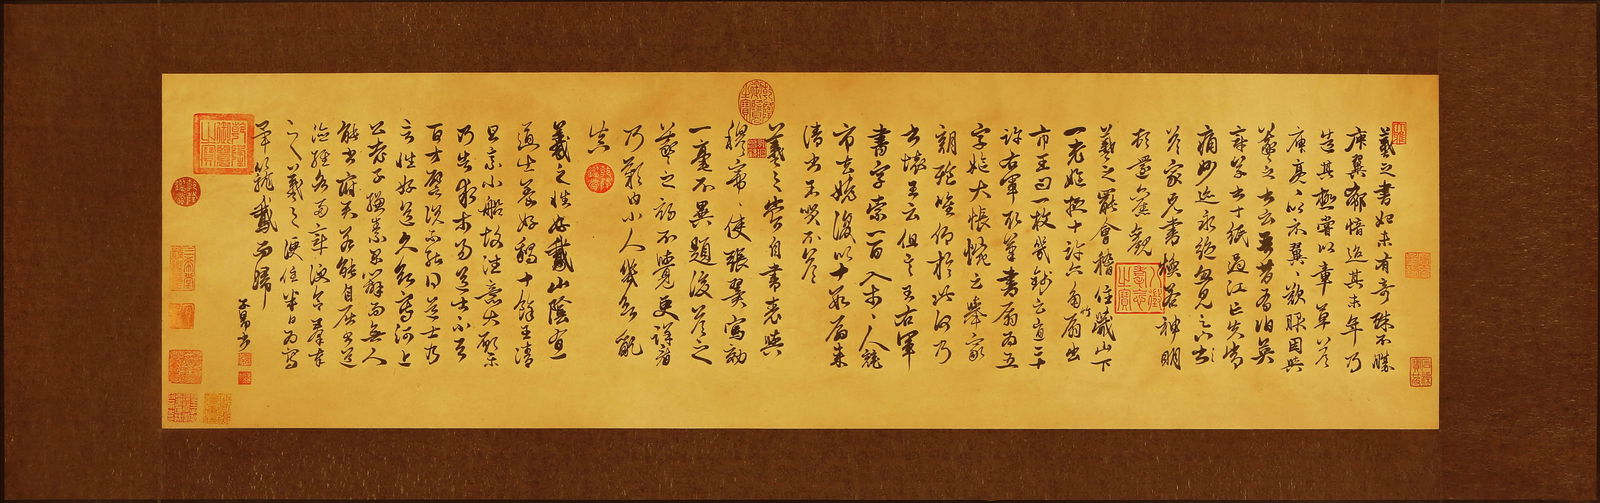 羲之書初未有奇殊不勝
庾翼郗愔迨其末年乃
造其極嘗以章草答
庾亮亮以示翼翼歎服因與
羲之書云吾昔有伯英
章草書十紙過江亡失常
痛妙迹永絕忽見足下書
答家兄書煥若神明
頓還舊觀
羲之罷會稽住蕺山下
一老嫗捉十許六角竹扇出
市王問一枚幾錢云直二十
許右軍取筆書扇為五
字嫗大悵惋云舉家
朝飧唯仰於此何乃
書壞王云但言王右軍
書字索一百入市市人競
市去嫗復以十數扇來
請書王笑不答
羲之嘗自書表與
穆帝帝使張翼寫效
一毫不異題後答之
羲之初不覺更詳看
乃歎曰小人幾欲亂
真
羲之性好鵝山陰有一
道士養好鵝十餘王清
旦乘小船故往意大願樂
乃告求市易道士不與
百方譬說不能得道士乃
言性好道久欲寫河上
公老子縑素早辦而無人
能書府君若能自屈書道
德經各兩章便合羣奉
之羲之便住半日為寫
畢籠鵝而歸
子昂書
八徵耄念之寶
乾隆御覽之寶